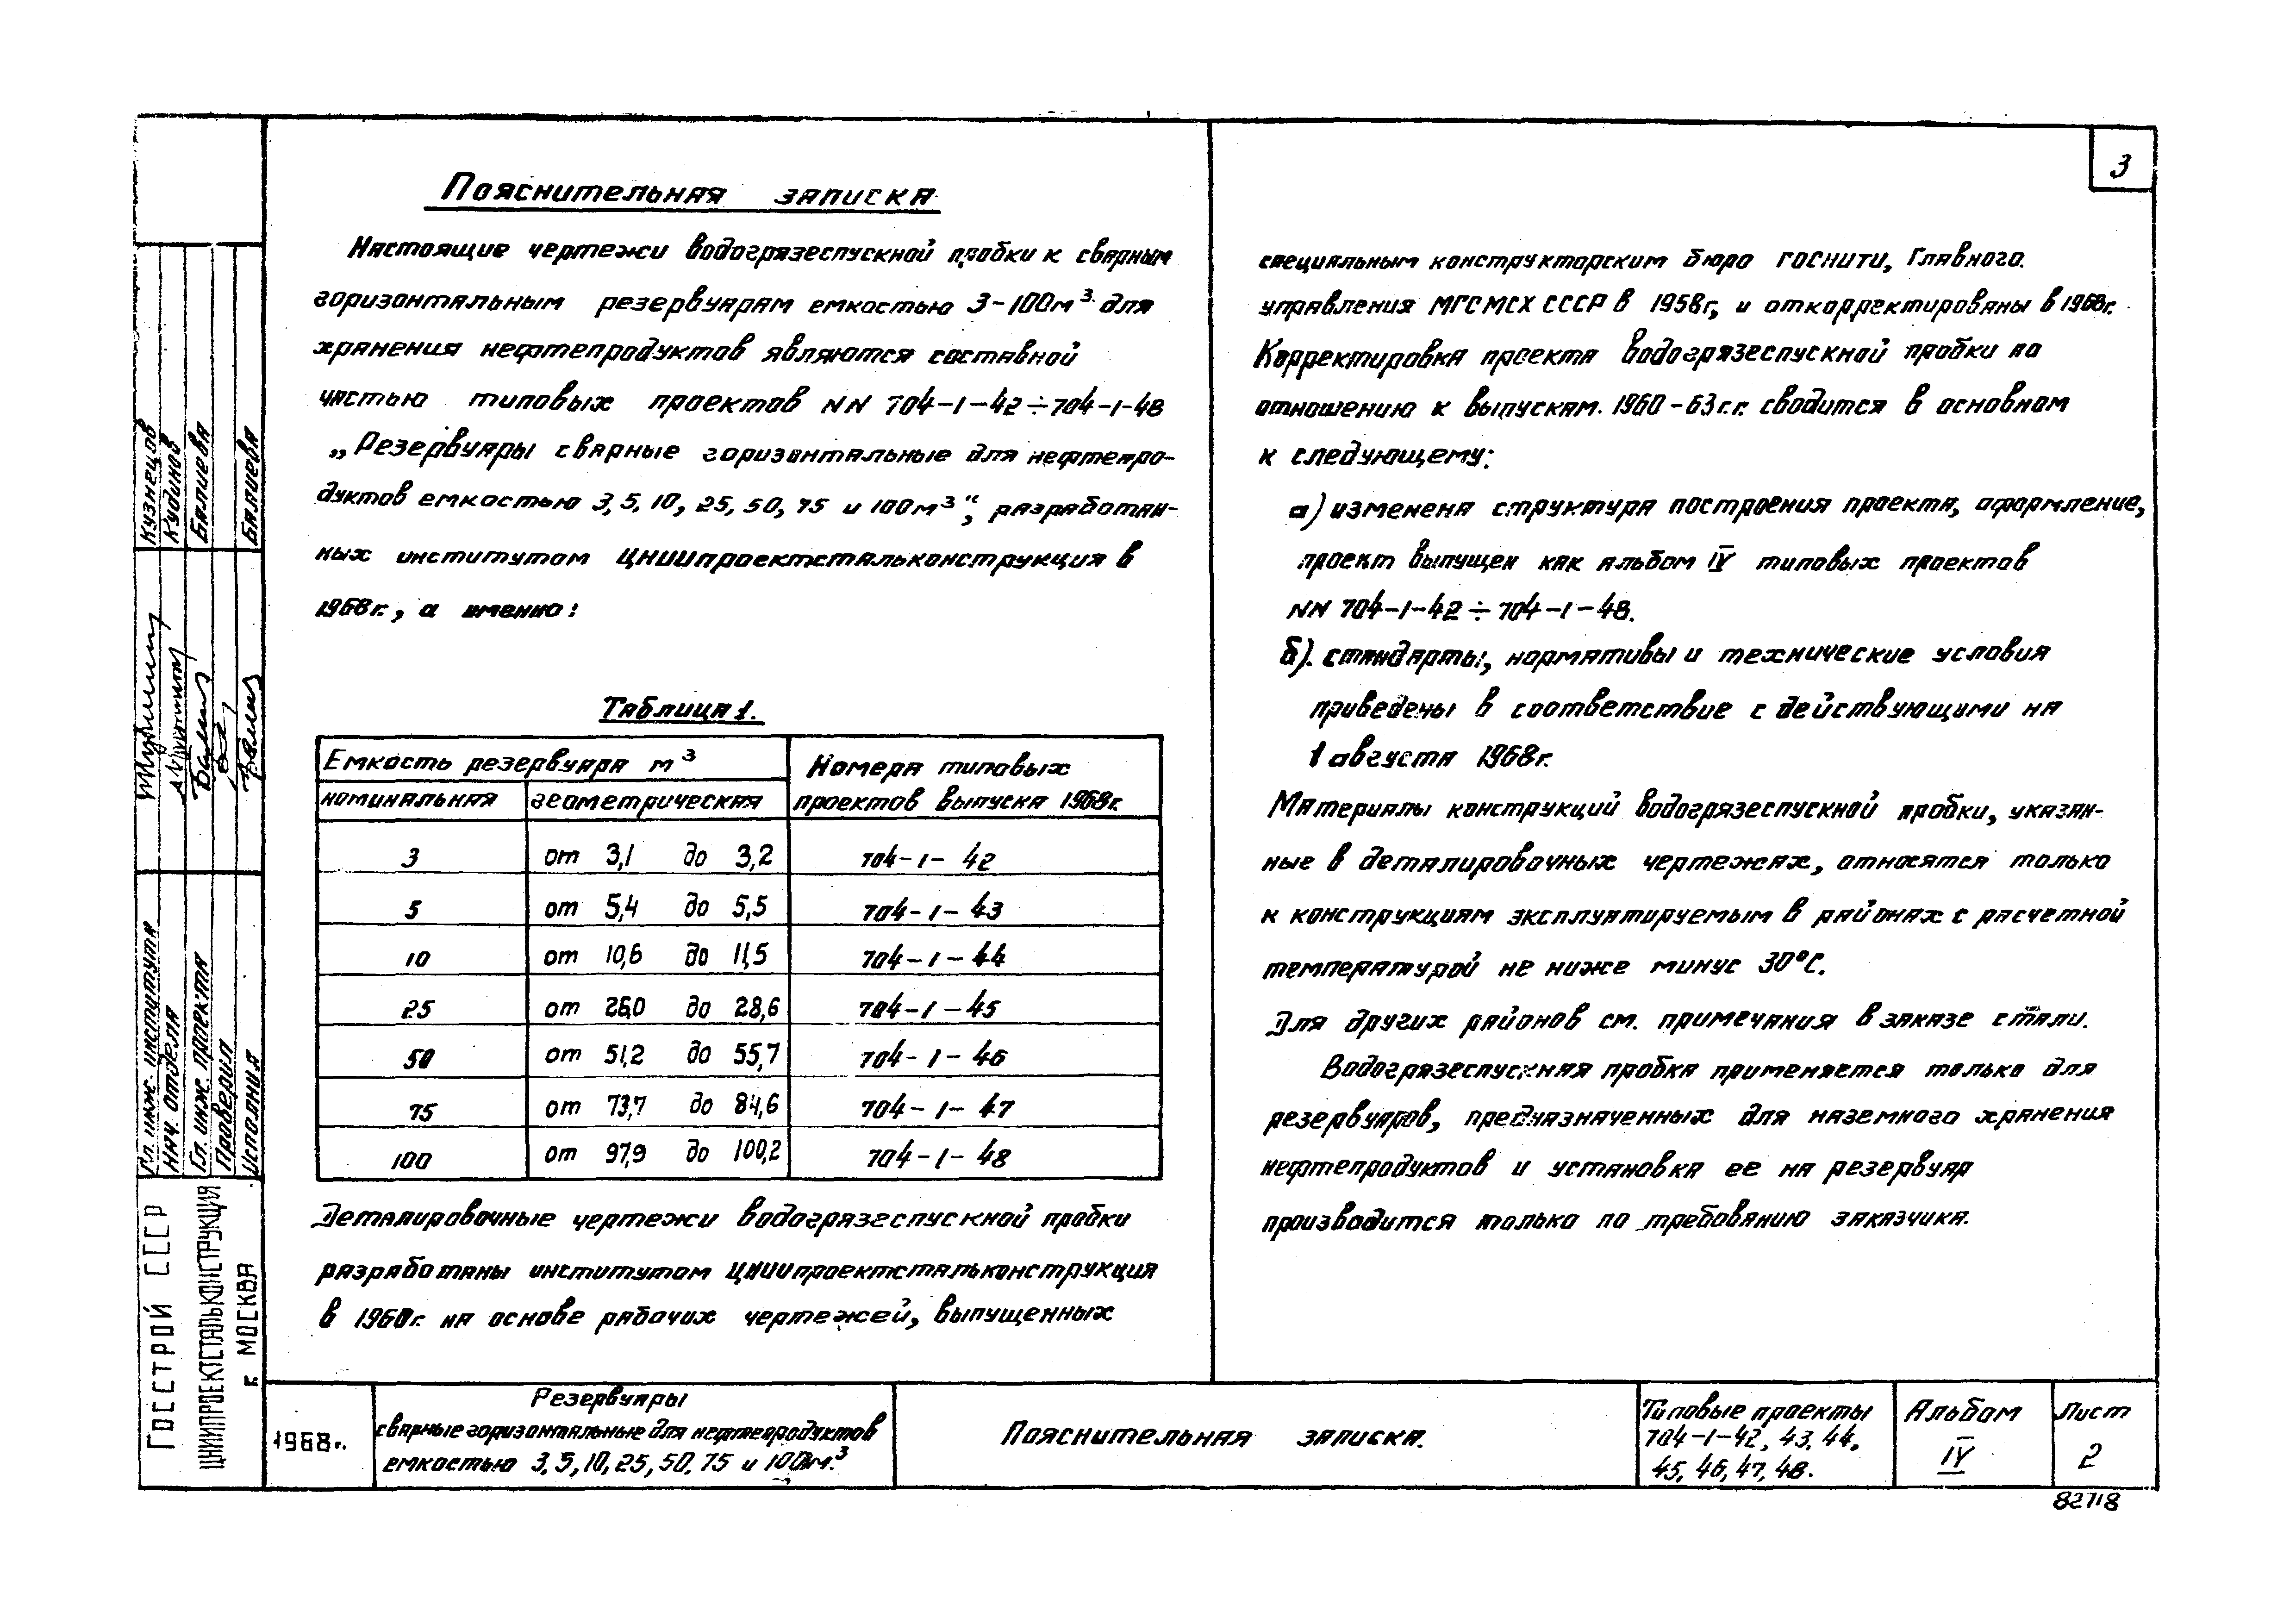 3
Пояснительная записка
Настоящие чертежи водогрязеспускной пробки к сварным
горизонтальным резервуарам емкостью 3-100м³ для
хранения нефтепродуктов являются составной
частью типовых проектов NN 704-1-42÷704-1-48
„Резервуары сварные горизонтальные для нефтепро-
дуктов емкостью 3, 5, 10, 25, 50, 75 и 100м³“, разработан-
ных институтом ЦНИИпроектстальконструкция в
1968г., а именно:
Таблица 1.
Емкость резервуара м³
Номера типовых
номинальная геометрическая проектов выпуска 1968г.
3 от 3,1 до 3,2 704-1-42
5 от 5,4 до 5,5 704-1-43
10 от 10,6 до 11,5 704-1-44
25 от 26,0 до 28,6 704-1-45
50 от 51,2 до 55,7 704-1-46
75 от 73,7 до 84,6 704-1-47
100 от 97,9 до 100,2 704-1-48
Деталировочные чертежи водогрязеспускной пробки
разработаны институтом ЦНИИпроектстальконструкция
в 1960г. на основе рабочих чертежей, выпущенных
специальным конструкторским бюро ГОСНИТИ, Главного
управления МГСМСХ СССР в 1958г, и откорректированы в 1968г.
Корректировка проекта водогрязеспускной пробки по
отношению к выпускам 1960-63г.г. сводится в основном
к следующему:
а) изменена структура построения проекта, оформление,
проект выпущен как альбом IV типовых проектов
NN 704-1-42÷704-1-48.
б). стандарты, нормативы и технические условия
приведены в соответствие с действующими на
1 августа 1968г.
Материалы конструкций водогрязеспускной пробки, указан-
ные в деталировочных чертежах, относятся только
к конструкциям эксплуатируемым в районах с расчетной
температурой не ниже минус 30°С.
Для других районов см. примечания в заказе стали.
Водогрязеспускная пробка применяется только для
резервуаров, предназначенных для наземного хранения
нефтепродуктов и установка ее на резервуар
производится только по требованию заказчика.
Гл. инж. института Кузнецов
Нач. отдела Кудинов
Гл. инж. проекта Балиева
Проверил
Исполнил Балиева
ГОССТРОЙ СССР
ЦНИИПРОЕКТСТАЛЬКОНСТРУКЦИЯ
г. МОСКВА
1968г.
Резервуары
сварные горизонтальные для нефтепродуктов
емкостью 3, 5, 10, 25, 50, 75 и 100м.³
Пояснительная записка.
Типовые проекты
704-1-42, 43, 44,
45, 46, 47, 48.
Альбом
IV
Лист
2
82718